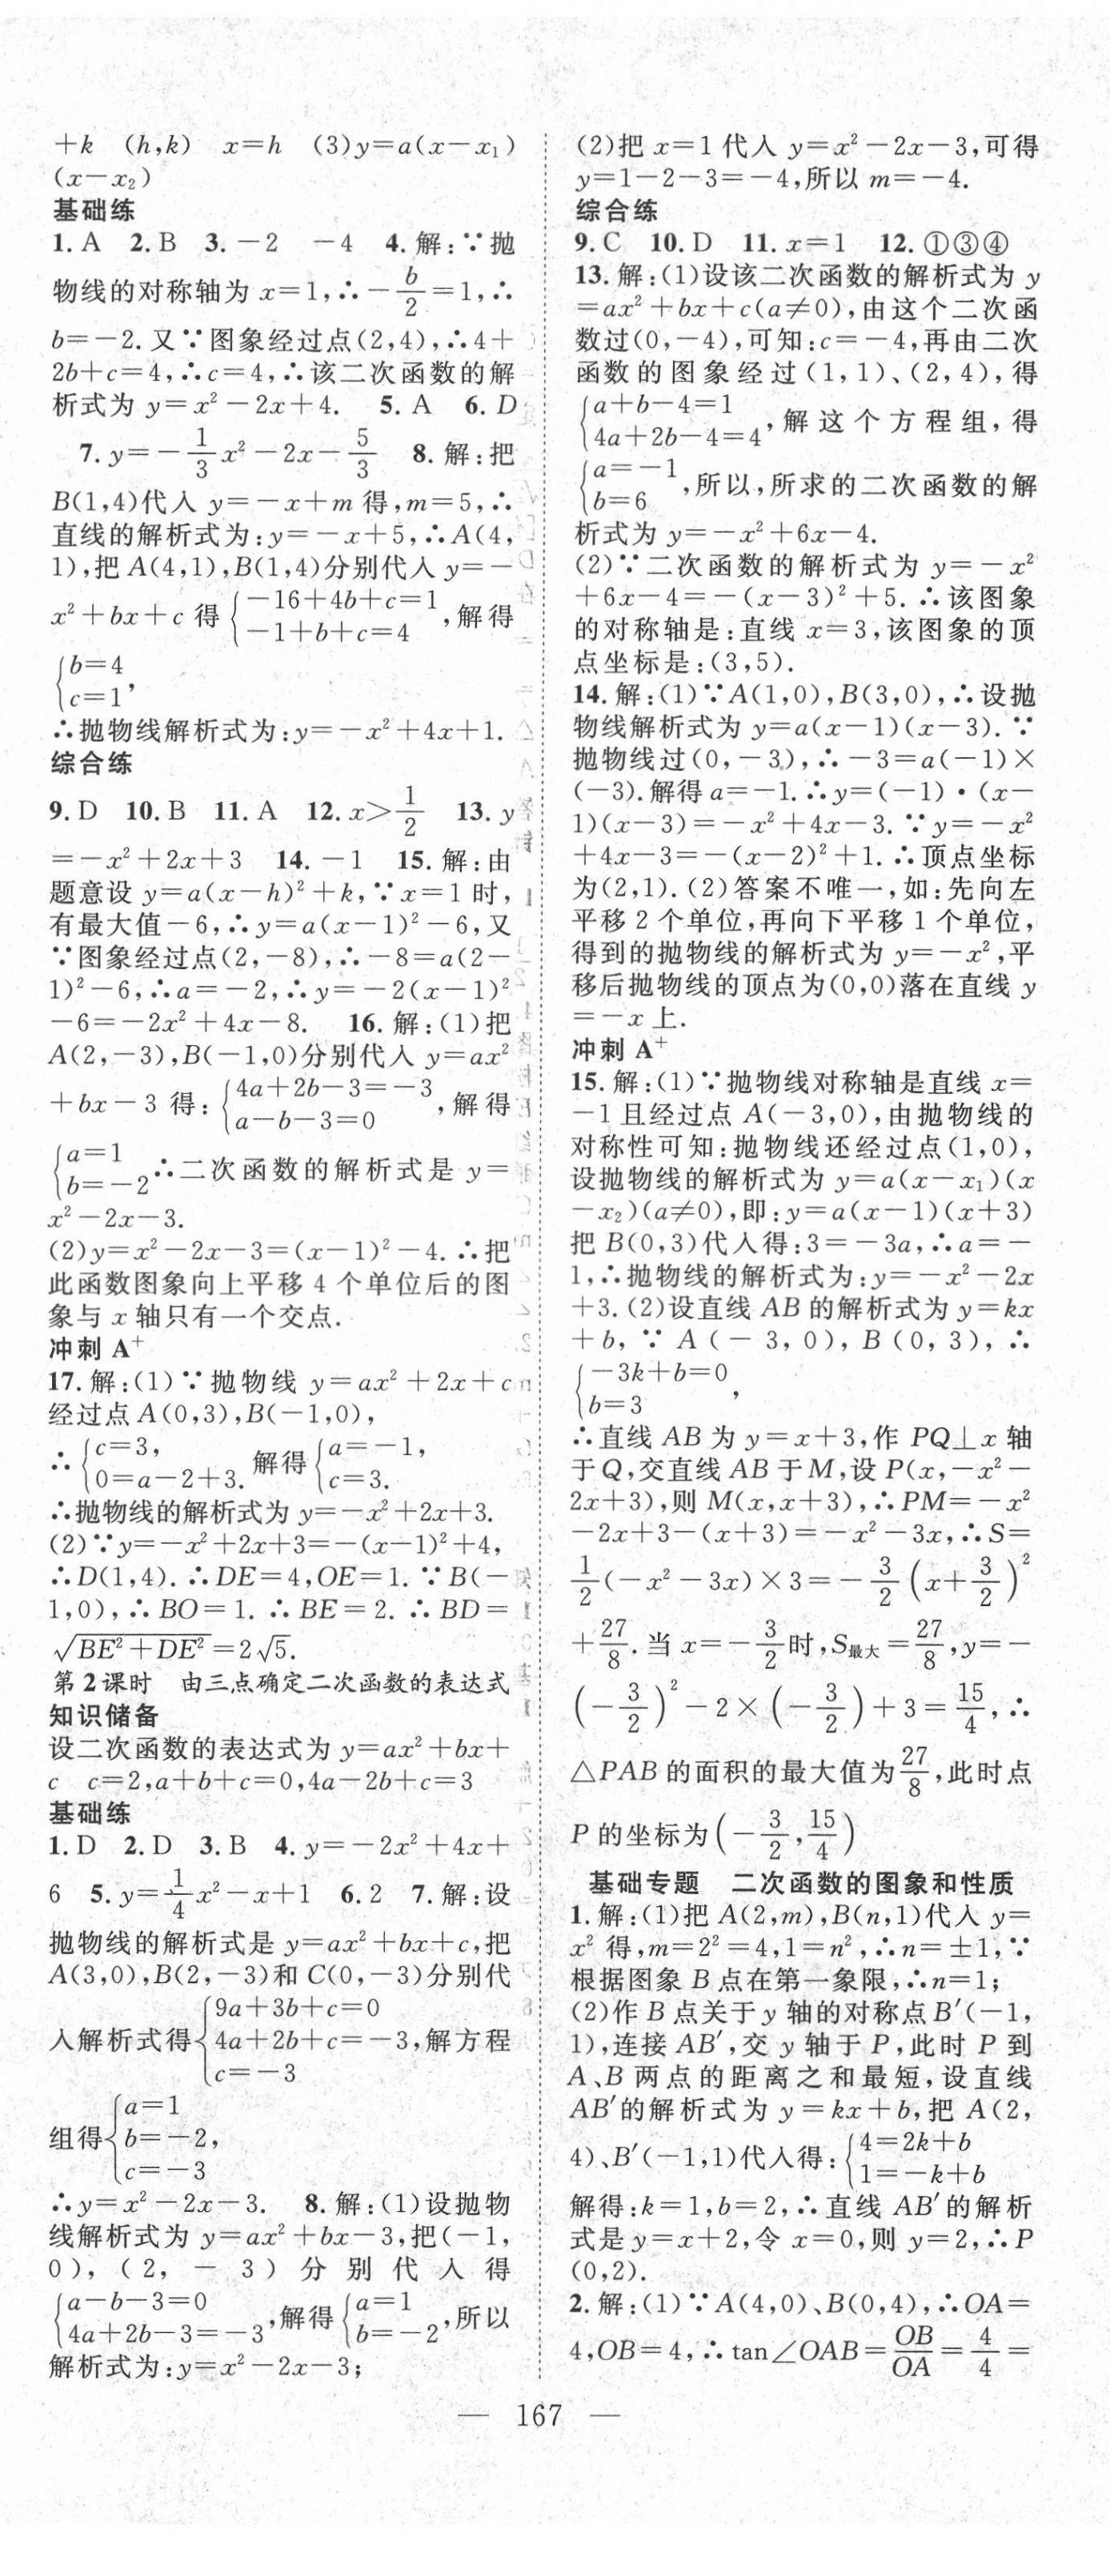 +k (h,k) x=h (3)y=a(x-x₁)
(x-x₂)
基础练
1. A 2. B 3. -2 -4 4. 解:∵抛
物线的对称轴为 x=1,∴-b/2=1,∴
b=-2. 又∵图象经过点(2,4),∴4+
2b+c=4,∴c=4,∴该二次函数的解
析式为 y=x²-2x+4. 5. A 6. D
7. y=-1/3x²-2x-5/3 8. 解:把
B(1,4)代入 y=-x+m 得,m=5,∴
直线的解析式为:y=-x+5,∴A(4,
1),把 A(4,1),B(1,4)分别代入 y=-
x²+bx+c 得{-16+4b+c=1
-1+b+c=4,解得
{b=4
c=1,
∴抛物线解析式为:y=-x²+4x+1.
综合练
9. D 10. B 11. A 12. x>1/2 13. y
=-x²+2x+3 14. -1 15. 解:由
题意设 y=a(x-h)²+k,∵x=1 时,
有最大值-6,∴y=a(x-1)²-6,又
∵图象经过点(2,-8),∴-8=a(2-
1)²-6,∴a=-2,∴y=-2(x-1)²
-6=-2x²+4x-8. 16. 解:(1)把
A(2,-3),B(-1,0)分别代入 y=ax²
+bx-3 得:{4a+2b-3=-3
a-b-3=0,解得
{a=1
b=-2∴二次函数的解析式是 y=
x²-2x-3.
(2)y=x²-2x-3=(x-1)²-4. ∴把
此函数图象向上平移 4 个单位后的图
象与 x 轴只有一个交点.
冲刺 A⁺
17. 解:(1)∵抛物线 y=ax²+2x+c
经过点 A(0,3),B(-1,0),
∴{c=3,
0=a-2+3. 解得{a=-1,
c=3.
∴抛物线的解析式为 y=-x²+2x+3.
(2)∵y=-x²+2x+3=-(x-1)²+4,
∴D(1,4). ∴DE=4,OE=1. ∵B(-
1,0),∴BO=1. ∴BE=2. ∴BD=
√(BE²+DE²)=2√5.
第 2 课时 由三点确定二次函数的表达式
知识储备
设二次函数的表达式为 y=ax²+bx+
c c=2,a+b+c=0,4a-2b+c=3
基础练
1. D 2. D 3. B 4. y=-2x²+4x+
6 5. y=1/4x²-x+1 6. 2 7. 解:设
抛物线的解析式是 y=ax²+bx+c,把
A(3,0),B(2,-3)和 C(0,-3)分别代
入解析式得{9a+3b+c=0
4a+2b+c=-3,解方程
c=-3
组得{a=1
b=-2,
c=-3
∴y=x²-2x-3. 8. 解:(1)设抛物
线解析式为 y=ax²+bx-3,把(-1,
0),(2,-3)分别代入得
{a-b-3=0
4a+2b-3=-3,解得{a=1
b=-2,所以
解析式为:y=x²-2x-3;
(2)把 x=1 代入 y=x²-2x-3,可得
y=1-2-3=-4,所以 m=-4.
综合练
9. C 10. D 11. x=1 12. ①③④
13. 解:(1)设该二次函数的解析式为 y
=ax²+bx+c(a≠0),由这个二次函
数过(0,-4),可知:c=-4,再由二次
函数的图象经过(1,1)、(2,4),得
{a+b-4=1
4a+2b-4=4,解这个方程组,得
{a=-1
b=6,所以,所求的二次函数的解
析式为 y=-x²+6x-4.
(2)∵二次函数的解析式为 y=-x²
+6x-4=-(x-3)²+5. ∴该图象
的对称轴是:直线 x=3,该图象的顶
点坐标是:(3,5).
14. 解:(1)∵A(1,0),B(3,0),∴设抛
物线解析式为 y=a(x-1)(x-3). ∵
抛物线过(0,-3),∴-3=a(-1)×
(-3). 解得 a=-1. ∴y=(-1)·(x-
1)(x-3)=-x²+4x-3. ∵y=-x²
+4x-3=-(x-2)²+1. ∴顶点坐标
为(2,1). (2)答案不唯一,如:先向左
平移 2 个单位,再向下平移 1 个单位,
得到的抛物线的解析式为 y=-x²,平
移后抛物线的顶点为(0,0)落在直线 y
=-x 上.
冲刺 A⁺
15. 解:(1)∵抛物线对称轴是直线 x=
-1 且经过点 A(-3,0),由抛物线的
对称性可知:抛物线还经过点(1,0),
设抛物线的解析式为 y=a(x-x₁)(x
-x₂)(a≠0),即:y=a(x-1)(x+3)
把 B(0,3)代入得:3=-3a,∴a=-
1,∴抛物线的解析式为:y=-x²-2x
+3. (2)设直线 AB 的解析式为 y=kx
+b,∵A(-3,0),B(0,3),∴
{-3k+b=0
b=3,
∴直线 AB 为 y=x+3,作 PQ⊥x 轴
于 Q,交直线 AB 于 M,设 P(x,-x²-
2x+3),则 M(x,x+3),∴PM=-x²
-2x+3-(x+3)=-x²-3x,∴S=
1/2(-x²-3x)×3=-3/2(x+3/2)²
+27/8. 当 x=-3/2时,S最大=27/8,y=-
(-3/2)²-2×(-3/2)+3=15/4,∴
△PAB 的面积的最大值为27/8,此时点
P 的坐标为(-3/2,15/4)
基础专题 二次函数的图象和性质
1. 解:(1)把 A(2,m),B(n,1)代入 y=
x² 得,m=2²=4,1=n²,∴n=±1,∵
根据图象 B 点在第一象限,∴n=1;
(2)作 B 点关于 y 轴的对称点 B′(-1,
1),连接 AB′,交 y 轴于 P,此时 P 到
A、B 两点的距离之和最短,设直线
AB′的解析式为 y=kx+b,把 A(2,
4)、B′(-1,1)代入得:{4=2k+b
1=-k+b
解得:k=1,b=2,∴直线 AB′的解析
式是 y=x+2,令 x=0,则 y=2,∴P
(0,2).
2. 解:(1)∵A(4,0)、B(0,4),∴OA=
4,OB=4,∴tan∠OAB=OB/OA=4/4=
— 167 —